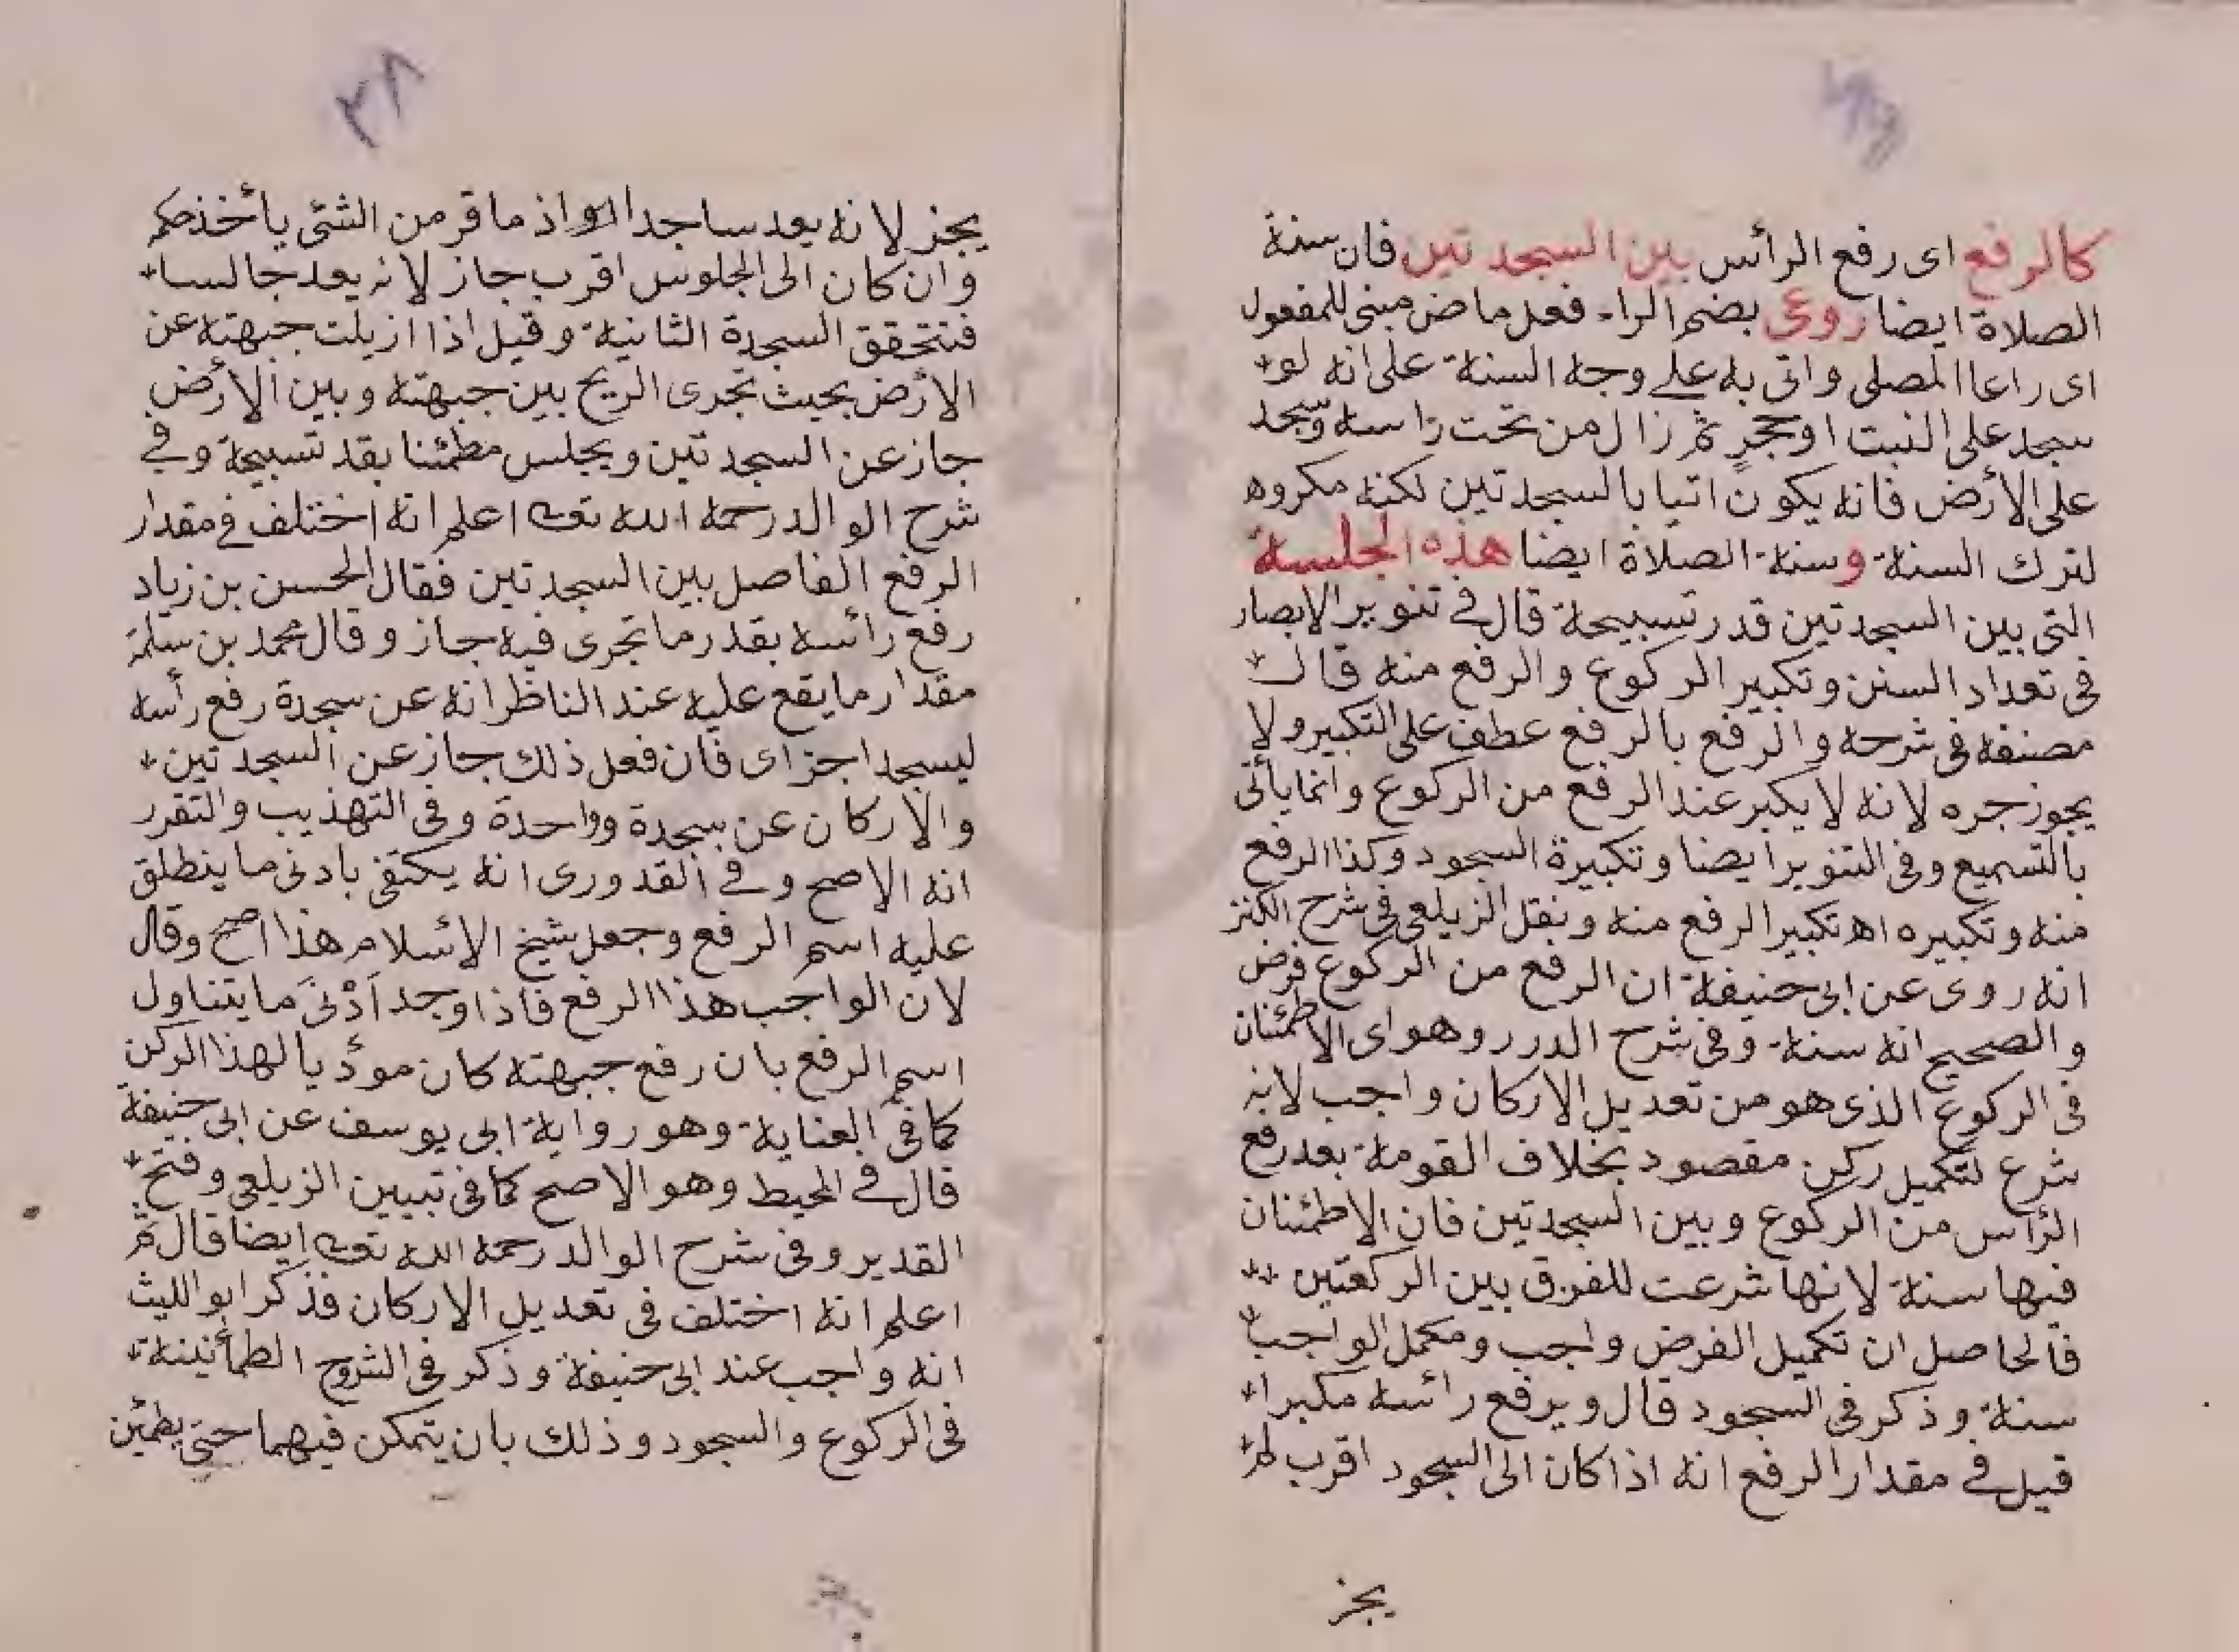 كالرفع اى رفع الرأس بين السجدتين فان سنة
الصلاة ايضا روعى بضم الراء فعل ماض مبنى للمفعول
اى راعا المصلى واتى به على وجه السنة على انه لو
سجد على النبت او حجرٍ ثم زال من تحت راسه وسجد
على الأرض فانه يكون اتيا بالسجدتين لكنه مكروه
لترك السنة وسنة الصلاة ايضا هذه الجلسة
التى بين السجدتين قدر تسبيحة قال فى تنوير الابصار
فى تعداد السنن وتكبير الركوع والرفع منه قال
مصنفه فى شرحه والرفع بالرفع عطف على التكبير ولا
يجوز جره لانه لا يكبر عند الرفع من الركوع وانما يأتى
بالتسميع وفى التنوير ايضا وتكبيرة السجود وكذا الرفع
منه وتكبيره اه تكبير الرفع منه ونقل الزيلعى فى شرح الكنز
انه روى عن ابى حنيفة ان الرفع من الركوع فرض
والصحيح انه سنة وفى شرح الدرر وهو اى الاطمئنان
فى الركوع الذى هو من تعديل الاركان واجب لانه
شرع لتكميل ركن مقصود بخلاف القومة بعد رفع
الرأس من الركوع وبين السجدتين فان الاطمئنان
فيها سنة لانها شرعت للفرق بين الركعتين
فالحاصل ان تكميل الفرض واجب ومكمل الواجب
سنة وذكر فى السجود قال ويرفع رائسه مكبرا
قيل فى مقدار الرفع انه اذا كان الى السجود اقرب لم
يجز
٣٨
يجز لانه يعد ساجدا اذ ما قر من الشئى يأخذ حكم
وان كان الى الجلوس اقرب جاز لانه يعد جالسا
فتتحقق السجدة الثانية وقيل اذا ازيلت جبهته عن
الارض بحيث تجرى الريح بين جبهته وبين الأرض
جاز عن السجدتين ويجلس مطمئنا بقد تسبيحة وفى
شرح الوالد رحمه الله تعالى اعلم انه اختلف فى مقدار
الرفع الفاصل بين السجدتين فقال الحسن بن زياد
رفع رائسه بقدر ما تجرى فيه جاز وقال محمد بن سلمة
مقدار ما يقع عليه عند الناظر انه عن سجدة رفع رأسه
ليسجد اجزاى فان فعل ذلك جاز عن السجدتين
والاركان عن سجدة وواحدة وفى التهذيب والتقرر
انه الاصح وفى القدورى انه يكتفى بادنى ما ينطلق
عليه اسم الرفع وجعل شيخ الإسلام هذا اصح وقال
لان الواجب هذا الرفع فاذا وجد اَدْنىَ ما يتناول
اسم الرفع بان رفع جبهته كان مودٔيا لهذا الركن
كما فى العناية وهو رواية ابى يوسف عن ابى حنيفة
قال فى المحيط وهو الاصح كما فى تبيين الزيلعى وفتح
القدير وفى شرح الوالد رحمه الله تعالى ايضا قال ثم
اعلم انه اختلف فى تعديل الاركان فذكر ابو الليث
انه واجب عند ابى حنيفة وذكر فى الشروح الطمأنينة
فى الركوع والسجود وذلك بان يتمكن فيهما حتى يطمئن